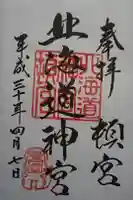 奉拝 頓宮
北海道神宮
平成三十年四月七日